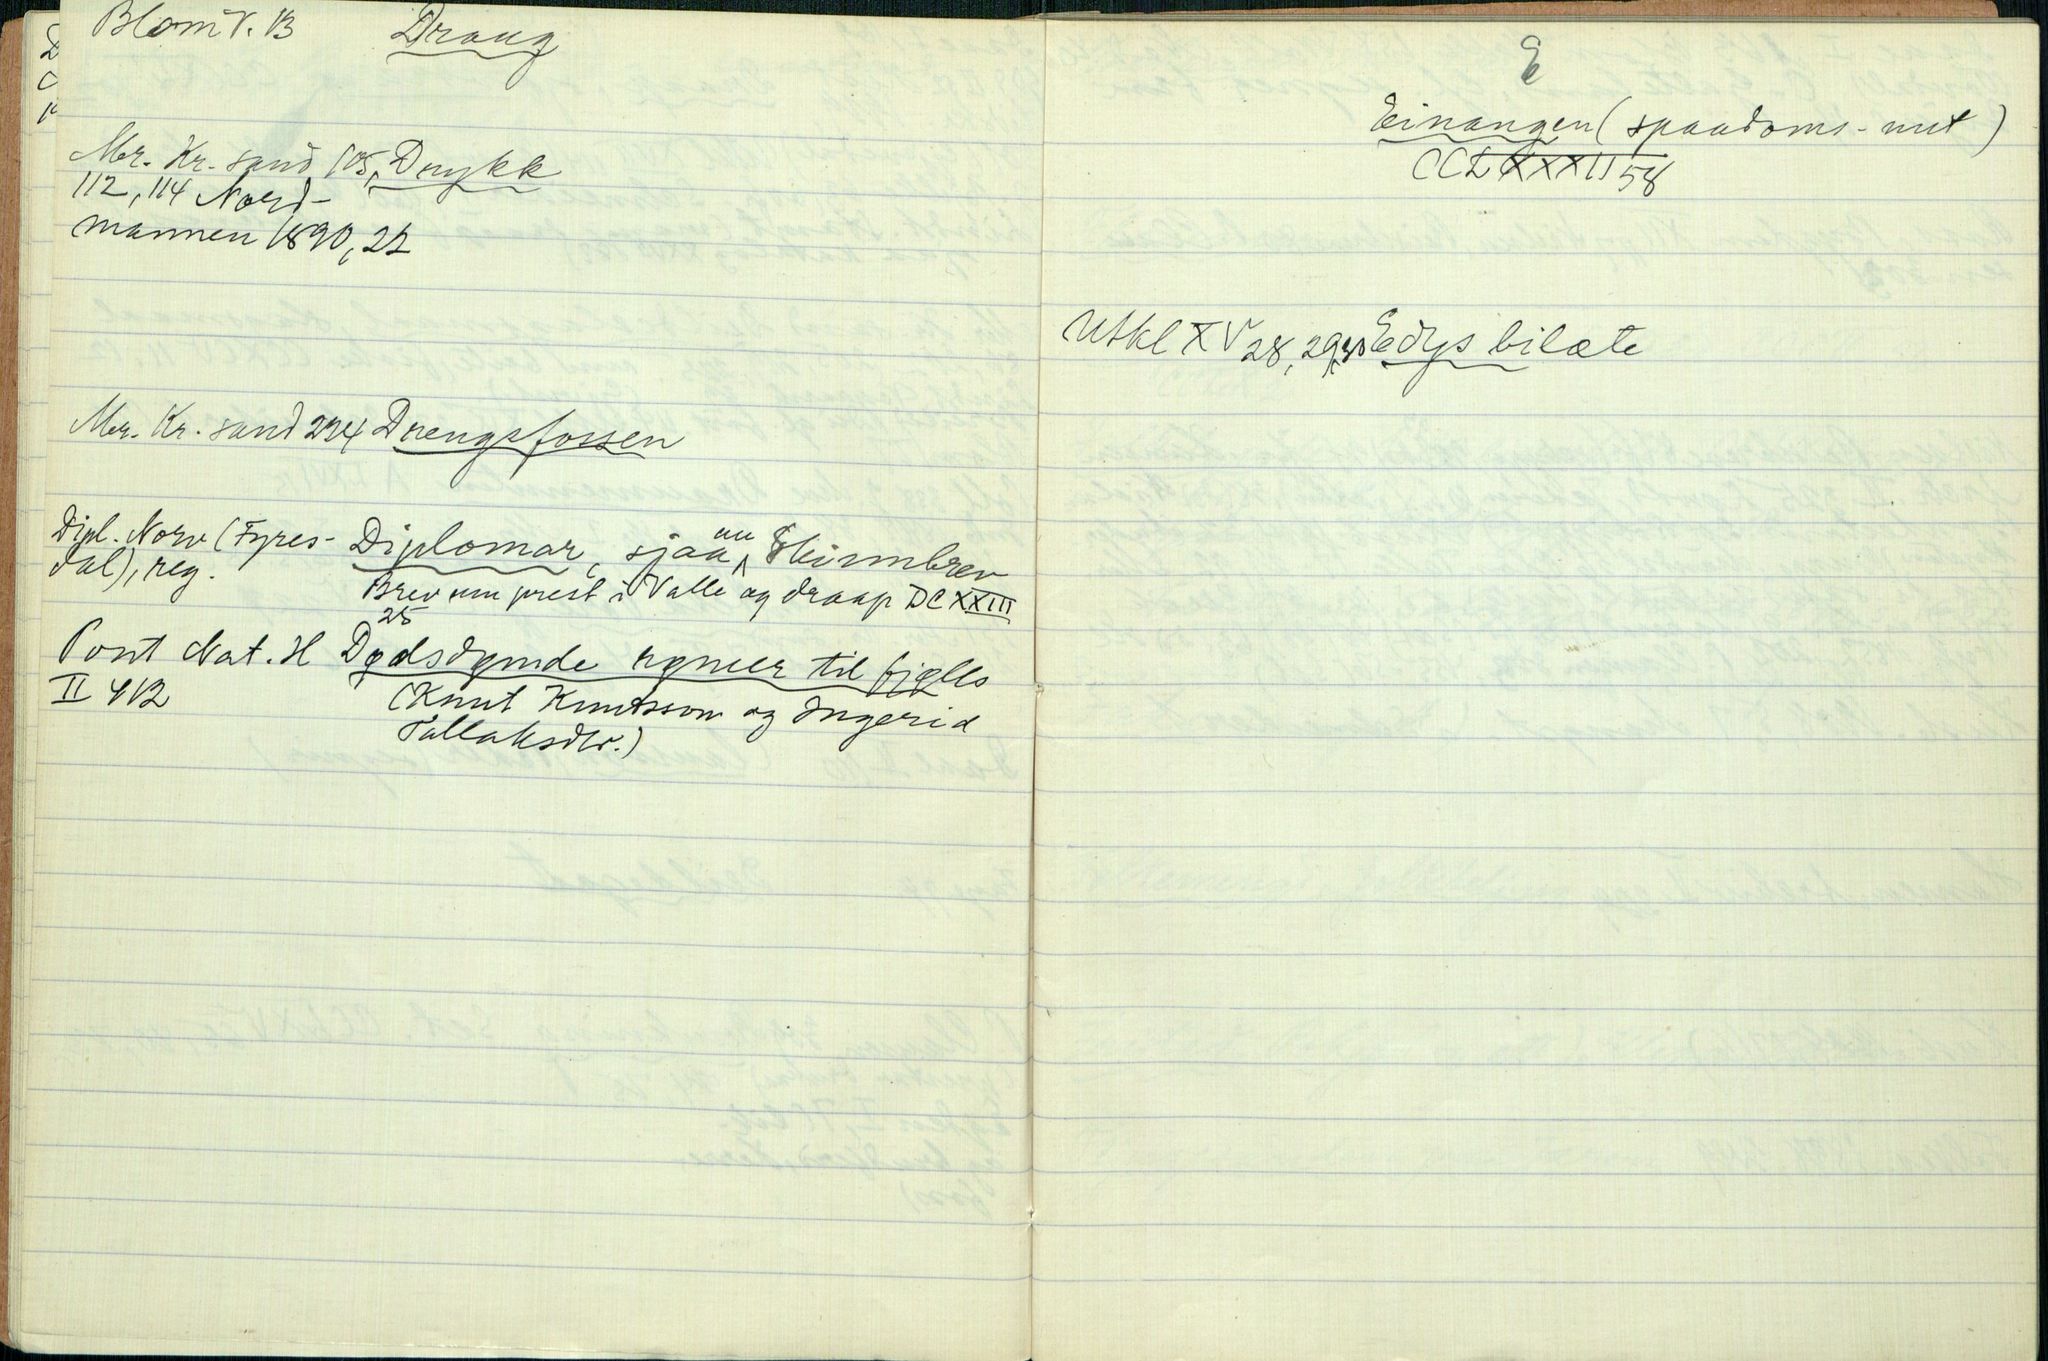 Blom V. B Draug
Mbr. Kr. sand 105, Drykk
112, 114 Nord-
mannen 1890, 22
Mbr. Kr. sand 224 Drengsfossen
Dipl. Norv (Fyres- Diplomar, sjaa nu Skinnbrev
dal), reg.
Brev um prest i Valle og draap DCXXIII
25
Pont Nat. H Dødsdømde rømer til fjells
II 412 (Knut Knutsson og Ingerid
Tallaksdtr.)
E
Einangen (spaadoms-nut)
CCLXXXII 58
Utkl XV 28, 29, 30 Edys bilæte